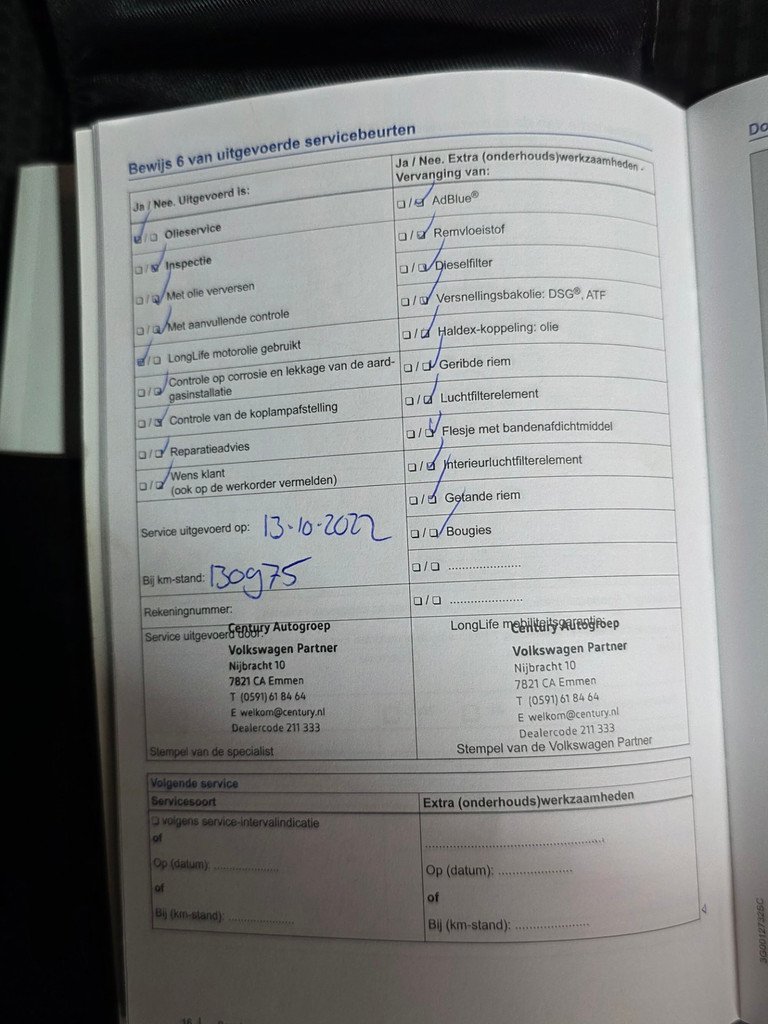 Bewijs 6 van uitgevoerde servicebeurten
Ja / Nee. Uitgevoerd is:
Olieservice
Inspectie
Met olie verversen
Met aanvullende controle
LongLife motorolie gebruikt
Controle op corrosie en lekkage van de aard-
gasinstallatie
Controle van de koplampafstelling
Reparatieadvies
Wens klant
(ook op de werkorder vermelden)
Service uitgevoerd op: 13-10-2022
Bij km-stand: 130975
Rekeningnummer:
Service uitgevoerd door:
Century Autogroep
Volkswagen Partner
Nijbracht 10
7821 CA Emmen
T (0591) 61 84 64
E welkom@century.nl
Dealercode 211 333
Stempel van de specialist
Ja / Nee. Extra (onderhouds)werkzaamheden -
Vervanging van:
AdBlue®
Remvloeistof
Dieselfilter
Versnellingsbakolie: DSG®, ATF
Haldex-koppeling: olie
Geribde riem
Luchtfilterelement
Flesje met bandenafdichtmiddel
Interieurluchtfilterelement
Getande riem
Bougies
LongLife mobiliteitsgarantie:
Century Autogroep
Volkswagen Partner
Nijbracht 10
7821 CA Emmen
T (0591) 61 84 64
E welkom@century.nl
Dealercode 211 333
Stempel van de Volkswagen Partner
Volgende service
Servicesoort
volgens service-intervalindicatie
of
Op (datum): ....................
of
Bij (km-stand): ....................
Extra (onderhouds)werkzaamheden
Op (datum): ....................
of
Bij (km-stand): ....................
16
Do
3G0012732BC